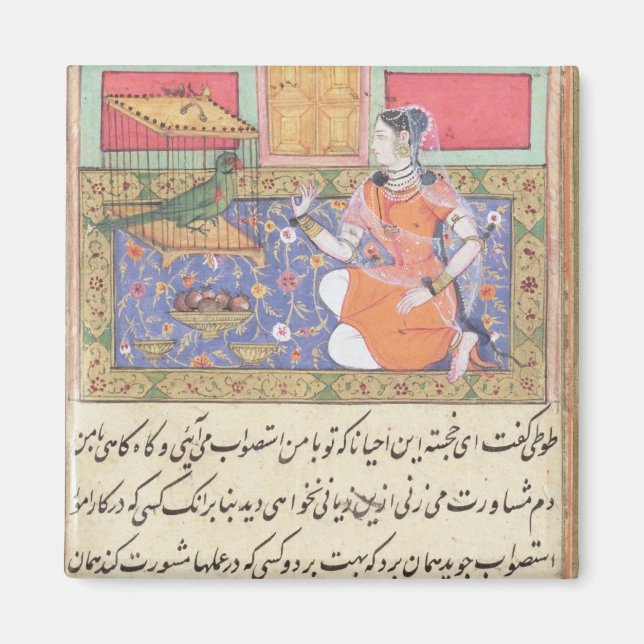 طوطی گفت ای خجسته این احیانا که تو با من استصواب می آیئی و گاه گاهی با من
دم مشاورت می زنی ازین زیانی نخواهی دید بنا برانک کسی که در کار امور
استصواب جوید همان برد که بهت برد و کسی که در عملها مشورت کند همان